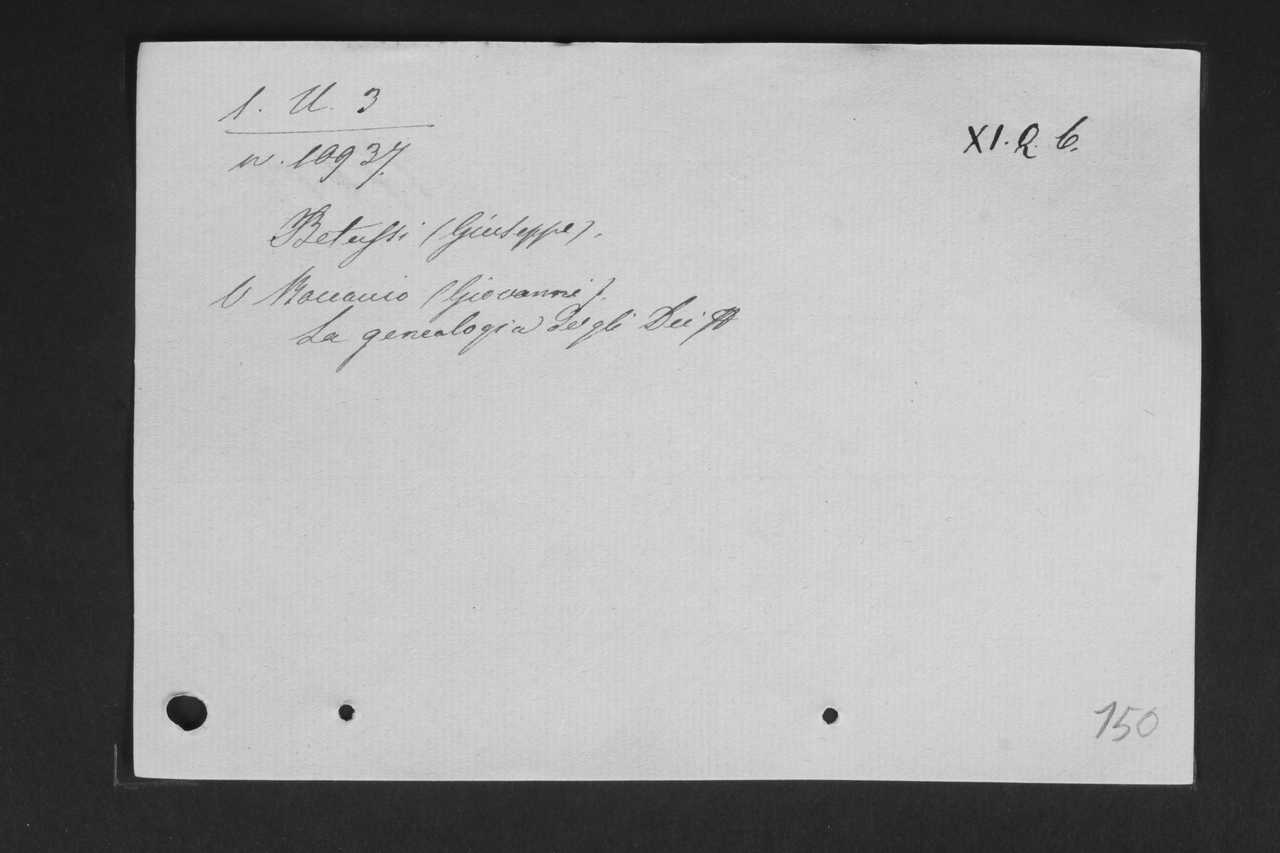 1. U. 3
XI. Q. 6.
n. 10937.
Betussi (Giuseppe).
V Boccaccio (Giovanni).
La genealogia degli Dei
150